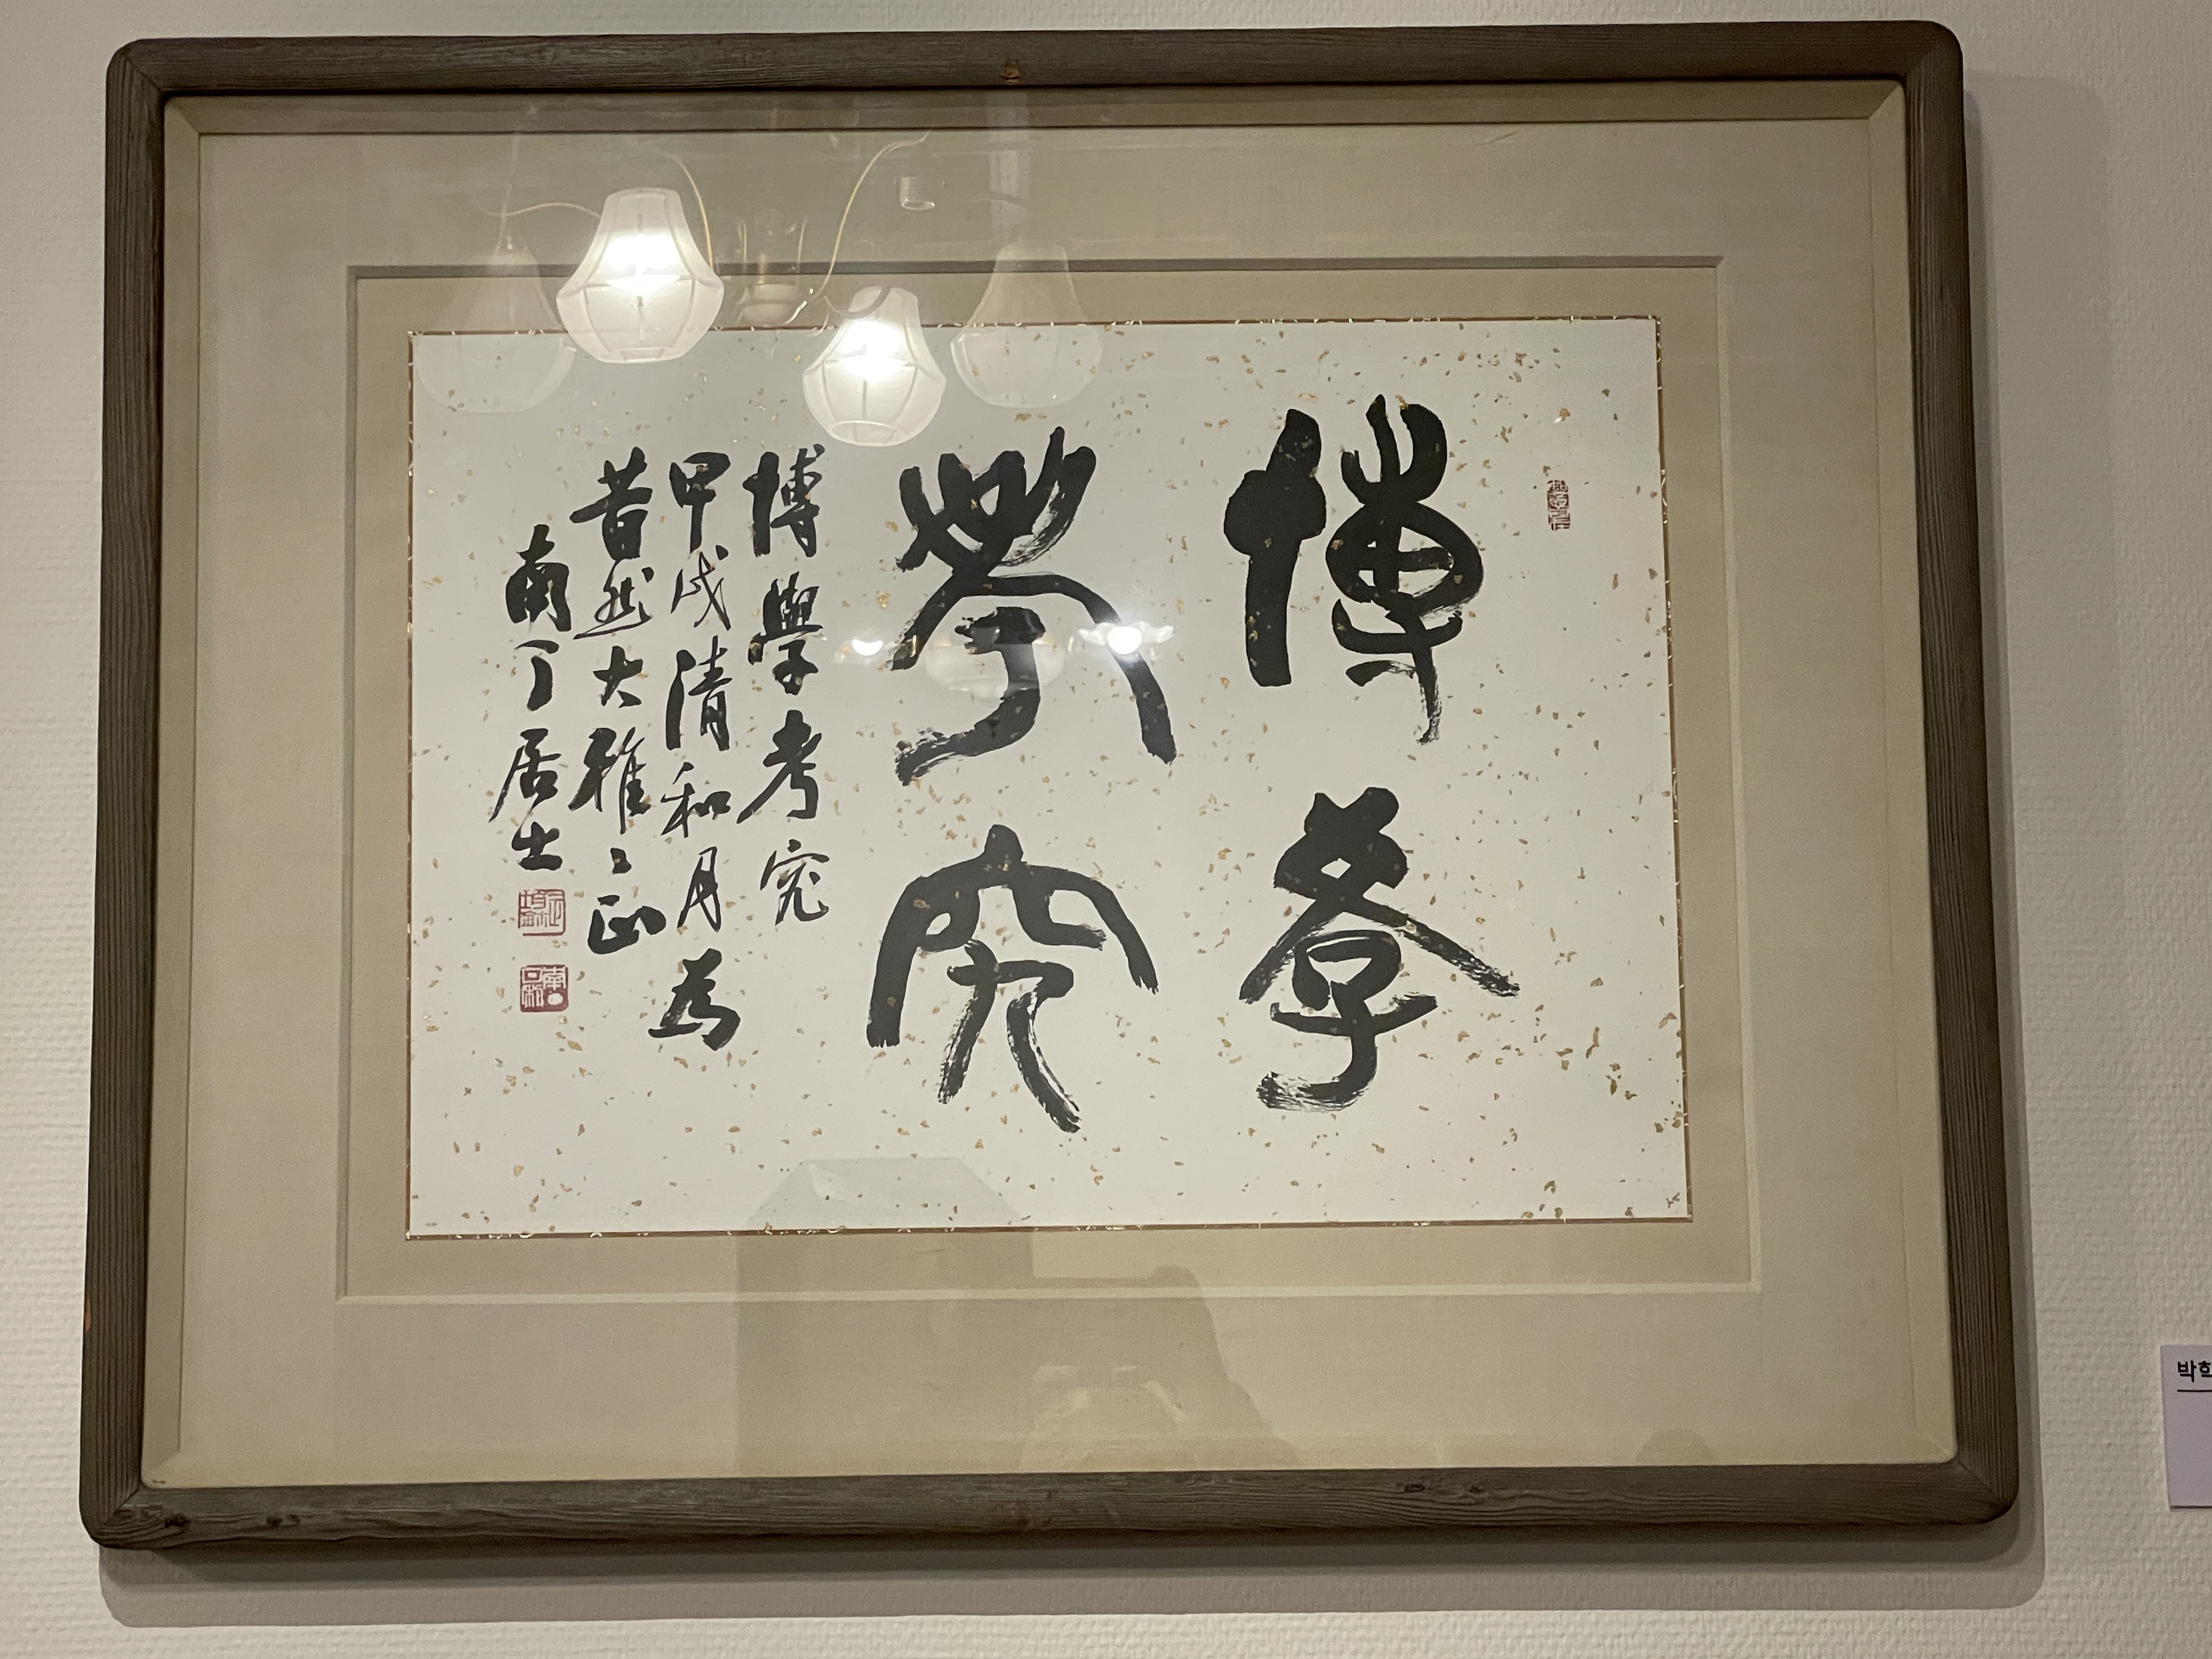 博學
考究
博學考究
甲戌清和月為
昔然大雅之正
南丁居士
박학